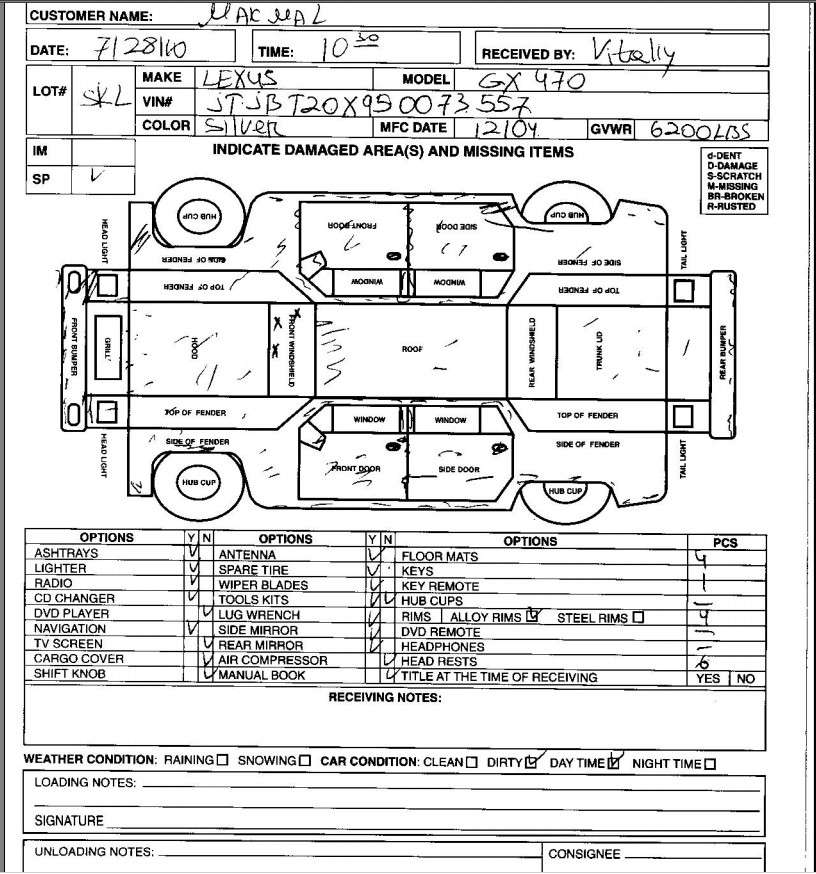 CUSTOMER NAME: MAKMAL
DATE: 7/28/10 TIME: 10 30 RECEIVED BY: Vitaliy
LOT# SKL MAKE LEXUS MODEL GX 470
VIN# JTJBT20X950073557
COLOR Silver MFC DATE 12/04 GVWR 6200LBS
IM
SP
INDICATE DAMAGED AREA(S) AND MISSING ITEMS
d-DENT
D-DAMAGE
S-SCRATCH
M-MISSING
BR-BROKEN
R-RUSTED
HUB CUP HUB CUP
HEAD LIGHT FRONT DOOR SIDE DOOR TAIL LIGHT
SIDE OF FENDER SIDE OF FENDER
TOP OF FENDER WINDOW WINDOW TOP OF FENDER
FRONT BUMPER GRILL HOOD FRONT WINDSHIELD ROOF REAR WINDSHIELD TRUNK LID REAR BUMPER
TOP OF FENDER WINDOW WINDOW TOP OF FENDER
SIDE OF FENDER SIDE OF FENDER
HEAD LIGHT FRONT DOOR SIDE DOOR TAIL LIGHT
HUB CUP HUB CUP
OPTIONS Y N OPTIONS Y N OPTIONS PCS
ASHTRAYS ANTENNA FLOOR MATS 4
LIGHTER SPARE TIRE KEYS 1
RADIO WIPER BLADES KEY REMOTE
CD CHANGER TOOLS KITS HUB CUPS —
DVD PLAYER LUG WRENCH RIMS ALLOY RIMS STEEL RIMS 4
NAVIGATION SIDE MIRROR DVD REMOTE —
TV SCREEN REAR MIRROR HEADPHONES —
CARGO COVER AIR COMPRESSOR HEAD RESTS 6
SHIFT KNOB MANUAL BOOK TITLE AT THE TIME OF RECEIVING YES NO
RECEIVING NOTES:
WEATHER CONDITION: RAINING SNOWING CAR CONDITION: CLEAN DIRTY DAY TIME NIGHT TIME
LOADING NOTES:
SIGNATURE
UNLOADING NOTES: CONSIGNEE